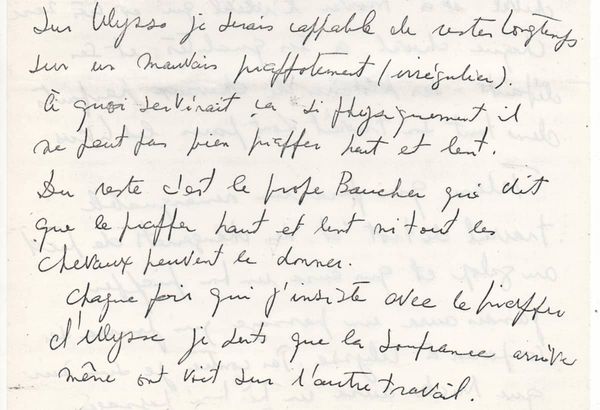 Sur Ulysse je serais cappable de rester longtemps
sur un mauvais piaffotement (irrégulier).
à quoi servirait ça si physiquement il
ne peut pas bien piaffer haut et lent.
Du reste c'est le profe Baucher qui dit
que le piaffer haut et lent ni tout les
chevaux peuvent le donner.
Chaque fois qui j'insiste avec le piaffer
d'Ulysse je sents que la soufrance arrive
même ont voit sur l'autre travail.